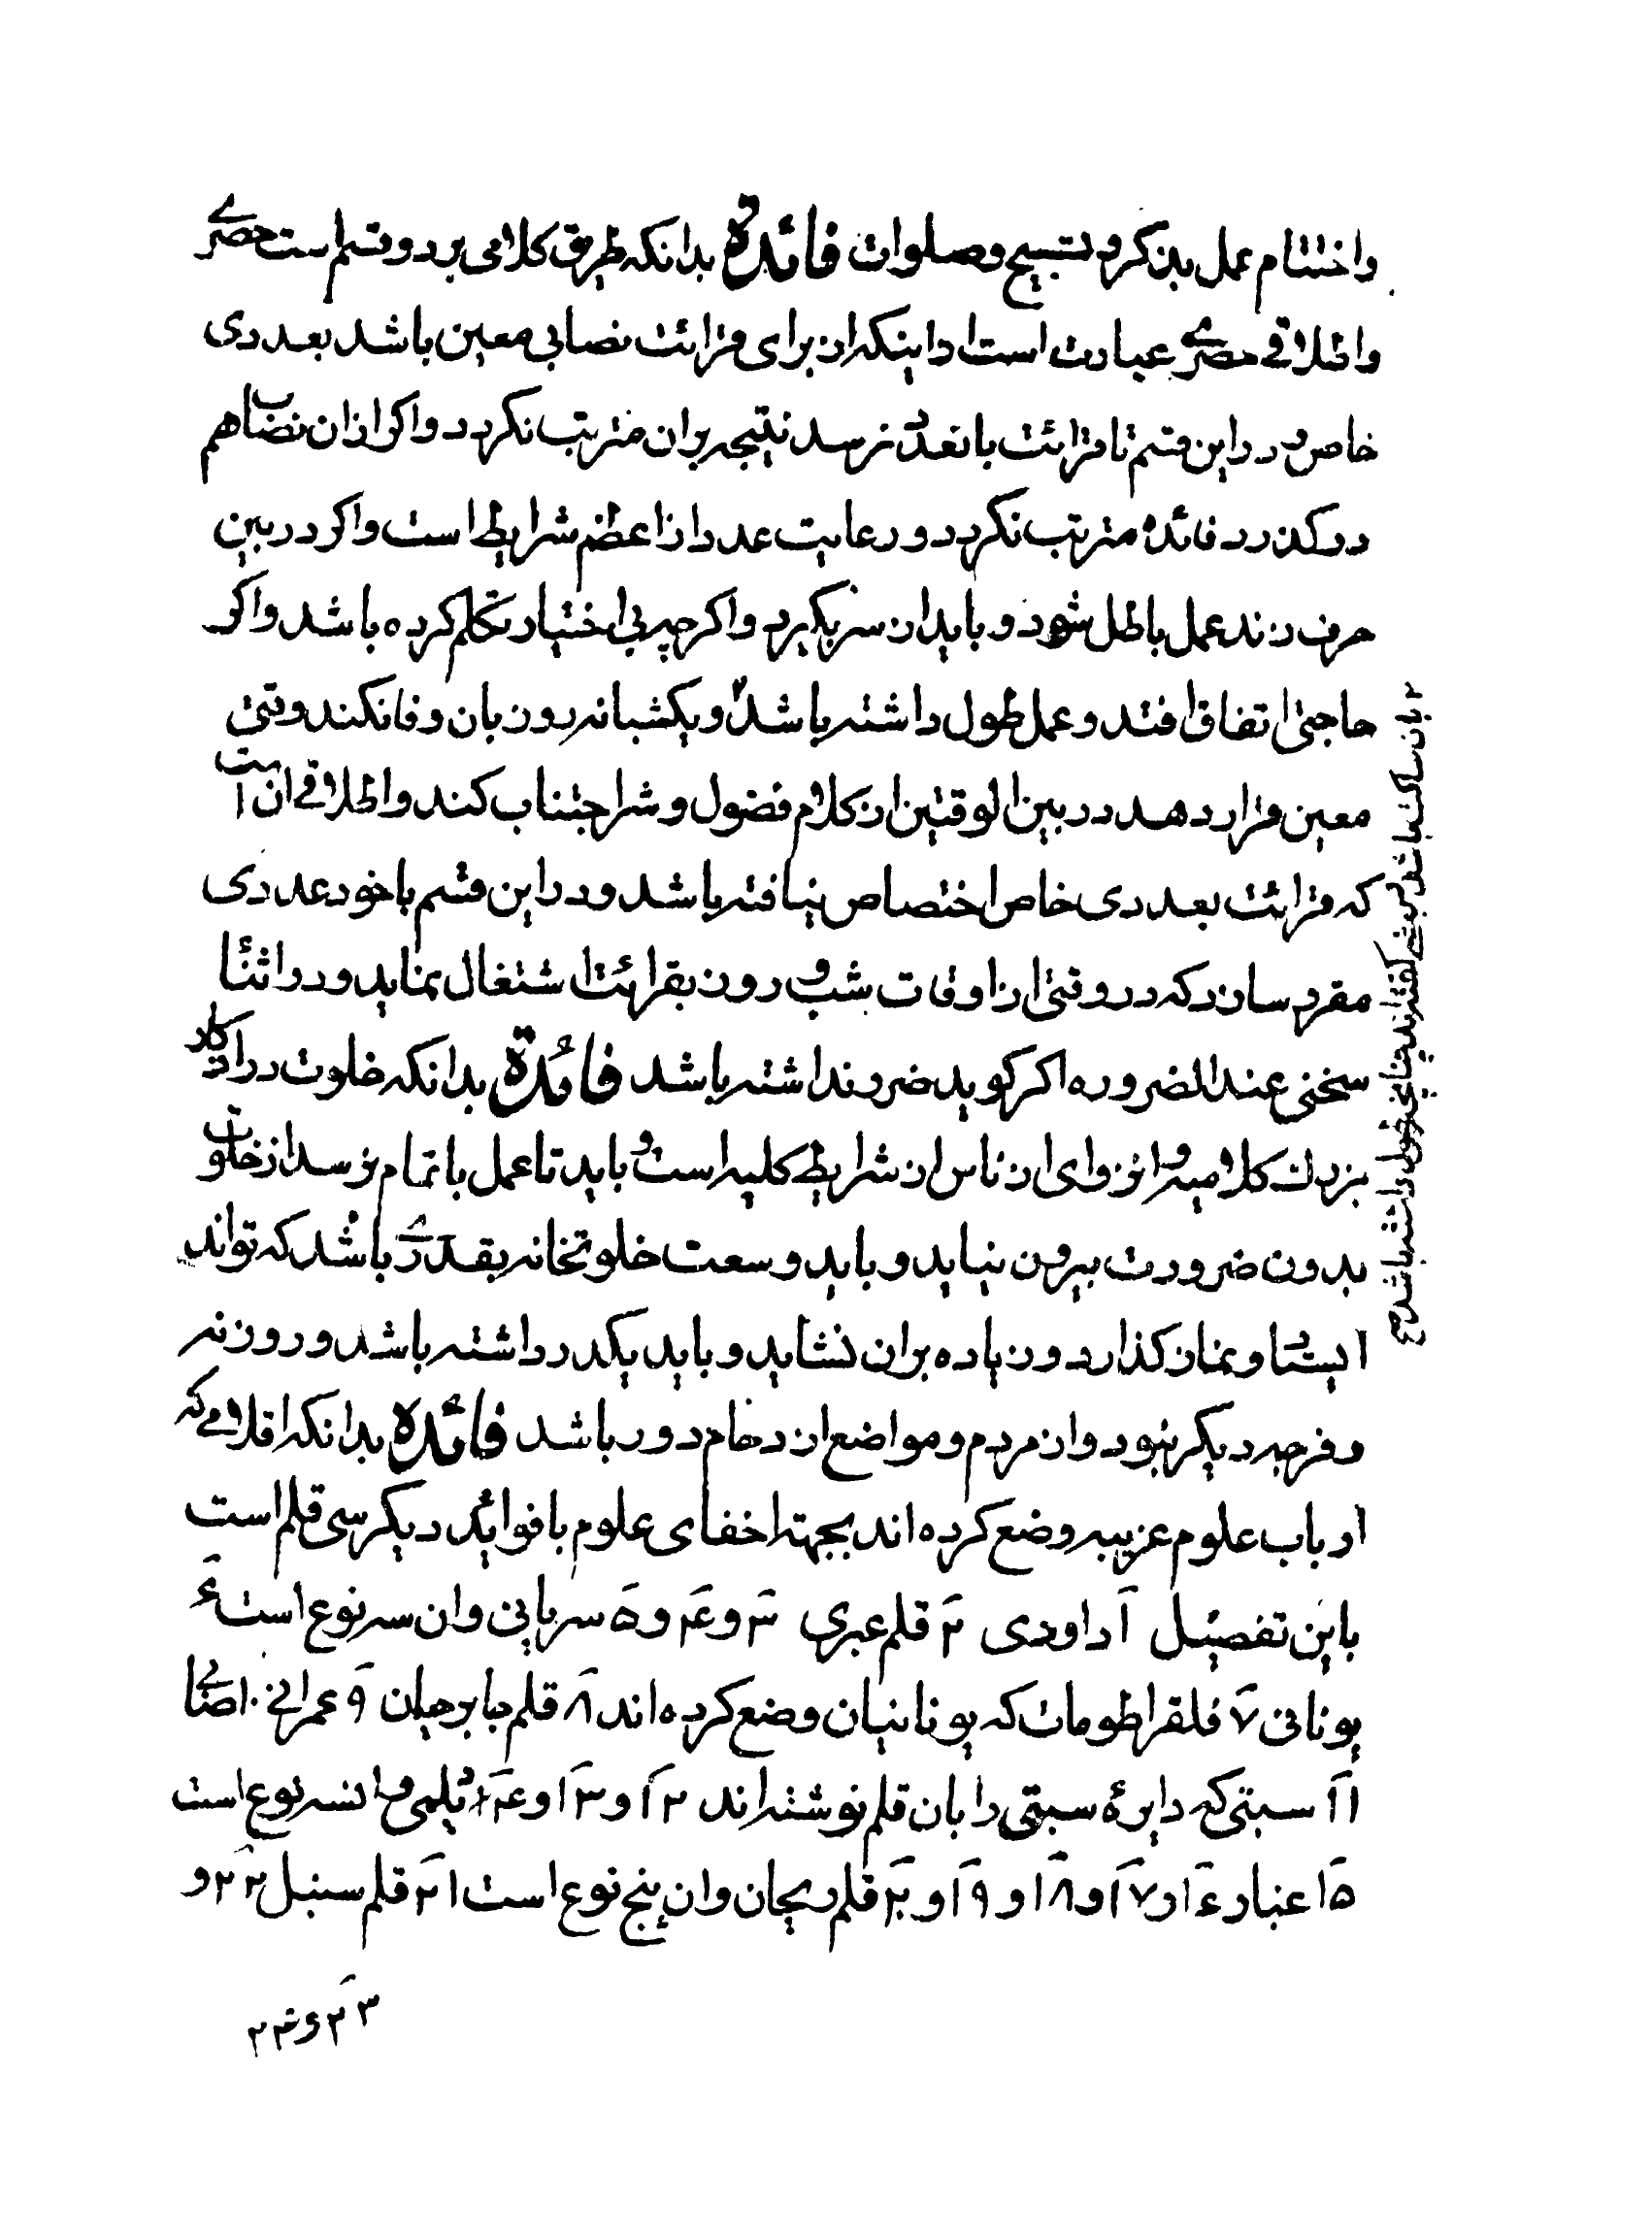 و اختتام عمل بذکر و تسبیح و صلوات فائدة بدانکه طریق کلامی بر دو قسم است حصری
و اطلاقی حصری عبارت است از اینکه از برای قرائت نصابی معین باشد بعددی
خاص و در این قسم تا قرائت بانعدد نرسد نتیجه بران مترتب نکردد و اکر ازان نصاب هم
درکذرد فائدهٔ مترتب نکردد و رعایت عدد از اعظم شرایط است و اکر در بین
حرف زند عمل باطل شود و باید از سر بکیرد و اکرچه بی اختیار تکلم کرده باشد و اکر
حاجتی اتفاق افتد و عمل طول داشته باشد۲ و یکشبانه روز بان وفا نکند وقتی
معین قرار دهد در بین الوقتین از کلام فضول و شر اجتناب کند و اطلاقی ان است
که قرائت بعددی خاص اختصاص نیافته باشد و در این قسم با خود عددی
مقرر سازد که در وقتی از اوقات شب و روز بقرائت اشتغال نماید و در اثنا
سخنی عند الضروره اکر کوید ضرر نداشته باشد فائدة بدانکه خلوت در اذکار
نزد کلامیه و انزوای از ناس از شرایط کلیه است و باید تا عمل باتمام نرسد از خلوت
بدون ضرورت بیرون نیاید و باید وسعت خلوتخانه بقدری باشد که تواند
ایستاد و نماز کذارد و زیاده بران نشاید و باید یکدر داشته باشد و روزنه
و فرجه دیکر نبود و از مردم و مواضع ازدحام دور باشد فائدة بدانکه اقلامی که
ارباب علوم غریبه وضع کرده اند بجهته اخفای علوم با فوائد دیکر سی قلم است
باین تفصیل ۱ داودی ۲ قلم عبری ۳ و ۴ و ۵ سریانی وان سه نوع است ۶
یونانی ۷ فلقراطومات که یونانیان وضع کرده اند ۸ قلم جابر حیان ۹ عمرانی ۱۰
۱۱ سبتی که دایرهٔ سبتی را بان قلم نوشته اند ۱۲ و ۱۳ و ۱۴ وانسه نوع است
۱۵ عنبار ۱۶ و ۱۷ و ۱۸ و ۱۹ و ۲۰ قلم ریحان وان پنج نوع است ۲۱ قلم سنبل ۲۲ و
۲۳ و ۲۴